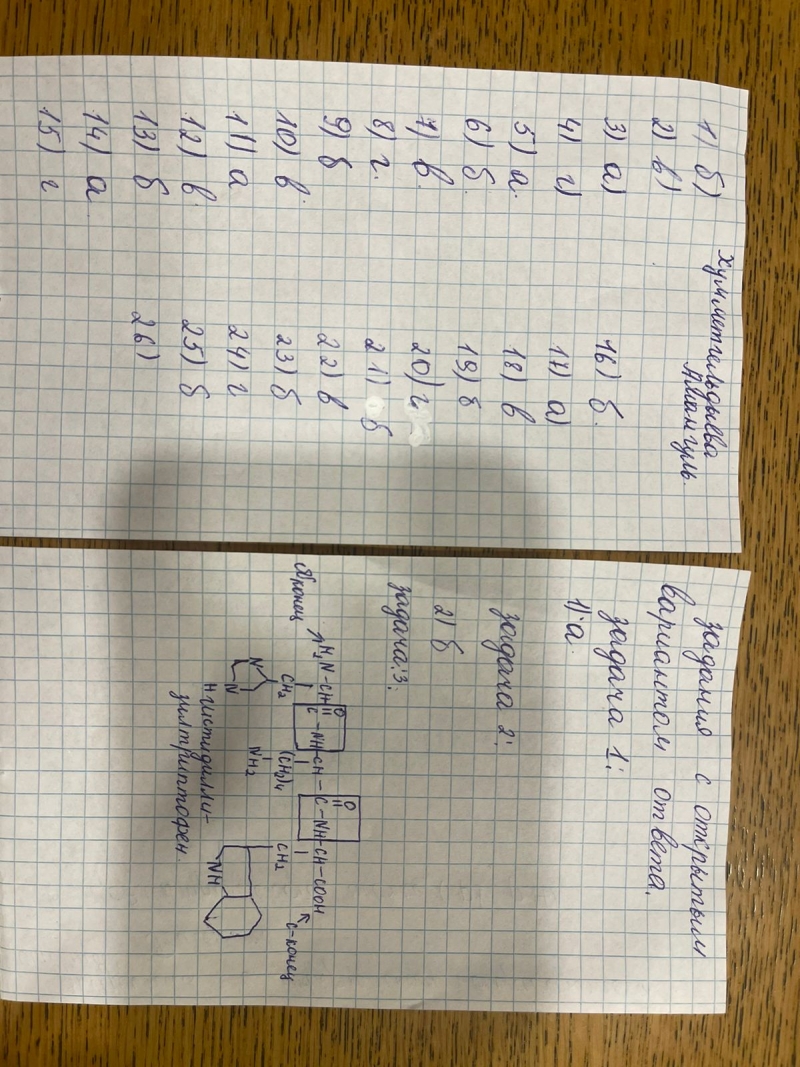 Хумметгельдыева
Айлангуль
1) б)
2) в)
3) а)
4) г)
5) а.
6) б.
7) в.
8) г.
9) б
10) в.
11) а
12) в
13) б
14) а.
15) г
16) б.
17) а)
18) в
19) б
20) г
21) б
22) в
23) б
24) г
25) б
26)
задания с открытым
вариантом ответа.
задача 1:
1) а.
задача 2:
2) б
задача:3:
N конец
H₂N-CH-C-NH-CH-C-NH-CH-COOH
O
O
C-конец
CH₂
(CH₂)₄
CH₂
NH₂
N
N
H
NH
гистидилли-
зилтриптофен.